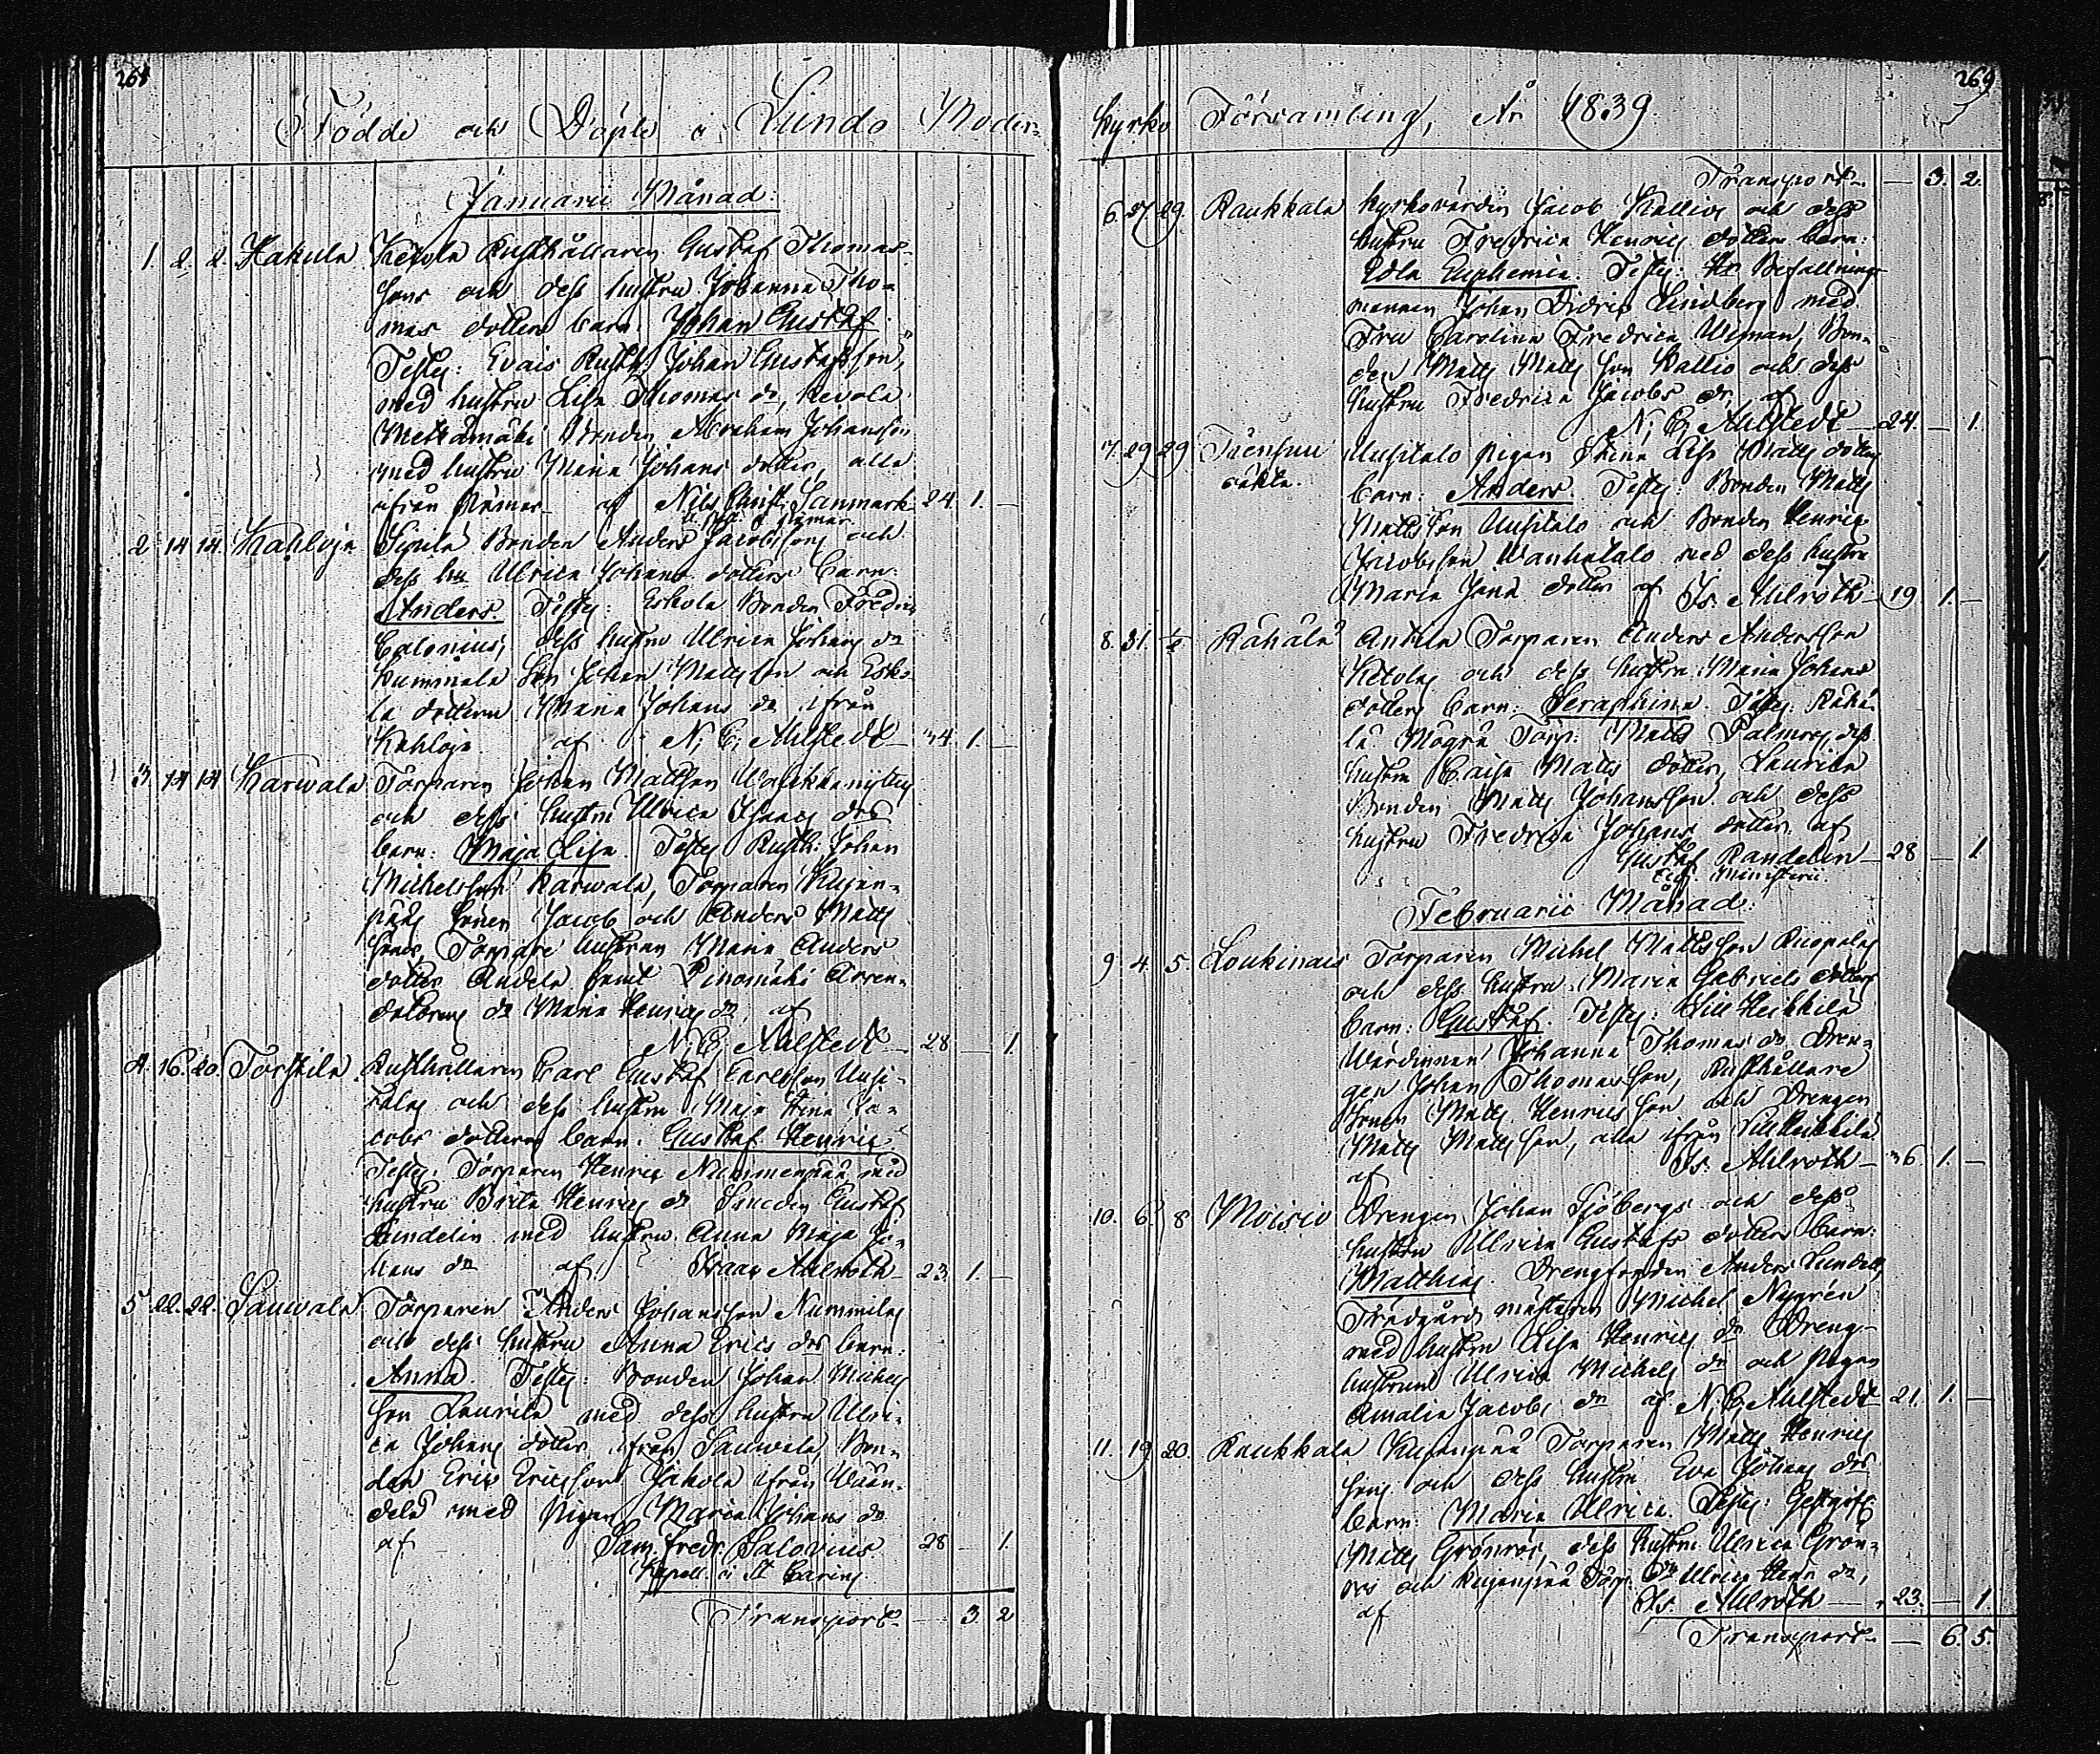 268
Födde och Döpte i Lundo Moder-
Januarii Månad.
1. 2. 2. Hakula Ketola Rusthållaren Gustaf Thomas-
sons och dess hustru Johanna Tho-
mas dotters barn. Johan Gustaf
Testes: Evais Rusth. Johan Gustafsson,
med hustru Lisa Thomas dr, Kevola
Mettämäki Bonden Abraham Johansson
med hustru Maria Johans dotter, alla
ifrån Pämar af Nils Christ. Sanmark 24. 1. —
2 14 14. Kahloja Sipilä Bonden Anders Jacobssons och
dess hu Ulrica Johans dotters Barn:
Anders. Testes: Eskola Bonden Fredric
Calonius, dess hustru Ulrica Johans dr
Kummila Son Johan Mattsson och Esko-
la dottern Maria Johans dr ifrån
Kahloja af N. E. Ahlstedt 34. 1. —
3. 14 14 Karwala Torparen Johan Mattsson
och dess hustru Ulrica Isaacs drs
barn: Maja Lisa. Testes Rusth: Johan
Michelsson Karwala, Torparen Kujan-
pääs Söner Jacob och Anders Matts
Söner Torpare hustrun Maria Anders
dotter Andela samt Pinomäki Arren-
datorens dr Maria Henrics dr, af
N. E. Ahlstedt 28 — 1.
4. 16. 20. Torskila. Rusthållaren Carl Gustaf Carlsson Uusi-
talos och dess hustru Maja Stina Ja-
cobs dotters barn. Gustaf Henric
Testes: Torparen Henric Nummenpää med
hustru Brita Henrics dr Smeden Gustaf
Sundelin med hustru Anna Maja Jo-
hans dr af Isaac Ahlroth 23. 1. —
5. 22. 22. Sauwala Torparen Anders Johansson Nummilas
och dess hustru Anna Erics drs barn:
Anna. Testes: Bonden Johan Michels
son Laurila med dess hustru Ulri-
ca Johans dotter ifrån Sauwala, Bon-
den Eric Ericsson Jakola ifrån Wään-
delä med Pigan Maria Johans dr
af Sam. Fredr. Salovius 28 — 1.
Kapell. i St Carins
Transport — 3. 2
269
Kyrko Församling, År 1839.
Transport — 3. 2.
6. 27 29. Raukkala Kyrkovärden Jacob Kallios och dess
hustru Fredrica Henrics dotters barn:
Edla Euphemia. Testes: Hr Befallnings-
mannen Johan Didric Lindberg med
Fru Carolina Fredrica Weman, Bon-
den Matts Matts son Kallio och dess
hustru Fredrica Jacobs dr, af
N. E. Ahlstedt 24. — 1.
7. 29 29 Uusitalo Pigan Stina Lisa Matts dotters
oäkta. barn: Anders. Testes: Bonden Matts
Mattsson Uusitalo och Bonden Henric
Jacobsson Wanhatalo med dess hustru
Maria Jons dotter af Is. Ahlroth 19. 1. —
8. 31. 1/2 Rähälä Anttila Torparen Anders Andersson
Ketolas och dess hustru Maria Johans
dotters barn: Seraphina. Testes. Rähä-
lä Mögrä Torp: Matts Palmros, dess
hustru Caisa Matts dotter, Laurila
Bonden Matts Johansson och dess
hustru Fredrica Johans dotter, af
Gustaf Randelin 28 — 1
Ministerii.
Februarii Månad.
9 4. 5. Loukinais Torparen Michel Mattsson Ruopolas
och dess hustru Maria Gabriels dotters
barn: Gustaf. Testes: Lill Heikkilä
Wärdinnan Johanna Thomas dr, Dren-
gen Johan Thomasson, Rusthållare
Sonen Matts Henricsson och Drengen
Matts Mattsson, alla ifrån Lillheikkilä
af Is. Ahlroth 36. 1. —
10. 6. 8 Moisio Drengen Johan Sjöbergs och dess
hustru Ulrica Gustafs dotters barn:
Matthias. Drengfogden Anders Lundell,
Trädgårds mästaren Michel Nygrén
med hustru Lisa Henrics dr Dreng-
hustrun Ulrica Michels dr och Pigan
Amalia Jacobs dr af N. E. Ahlstedt 21. 1. —
11. 19 20. Raukkala Kujanpää Torparen Matts Henrics
sons och dess hustru Eva Johans drs
barn: Maria Ulrica. Testes: Gestgifv.
Matts Grönros, dess hustru Ulrica Grön-
ros och Kujanpää Torp. dr Ulrica Henr. dr,
af Is. Ahlroth 23. — 1.
Transport — 6. 5.